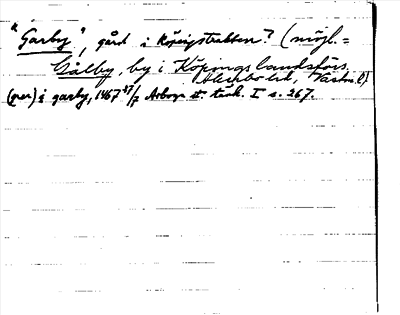 "Garby", gård i Köpingstrakten? (möjl. =
Gålby, by i Köpings landsförs.
Åkerbo hd, Västm. l)
(per) i garby, 1467 27/7 Arboga st. tänk. I s. 267.